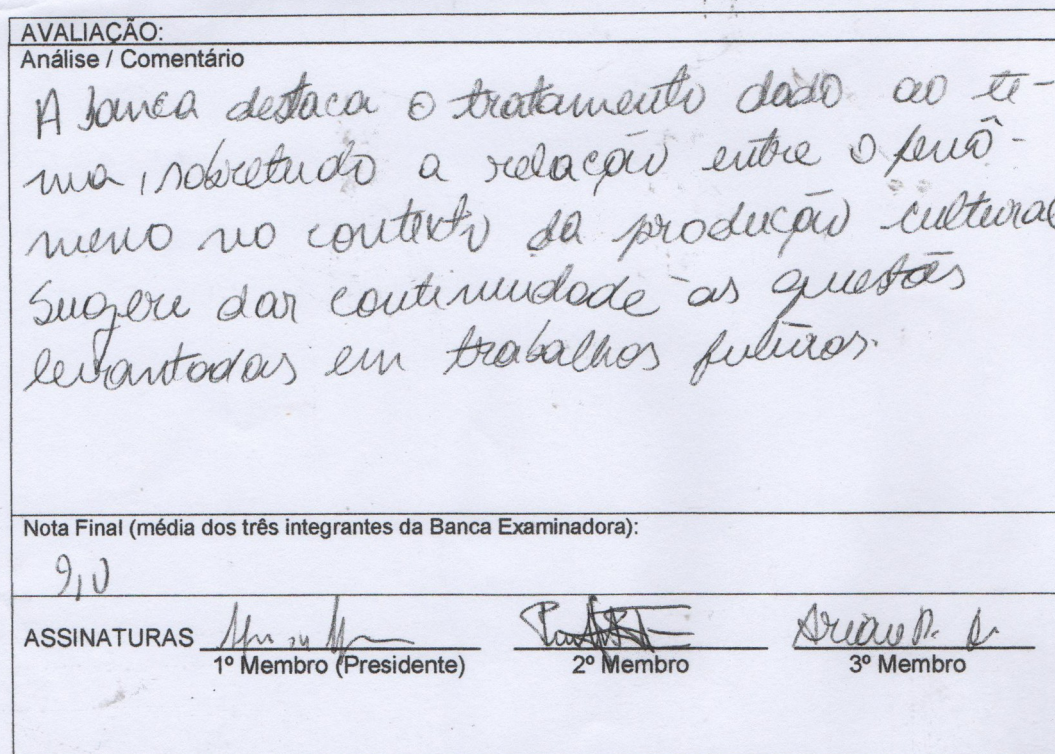 AVALIAÇÃO:
Análise / Comentário
A banca destaca o tratamento dado ao te-
ma, sobretudo a relação entre o fenô-
meno no contexto da produção cultural
Sugere dar continuidade as questões
levantadas em trabalhos futuros.
Nota Final (média dos três integrantes da Banca Examinadora):
9,0
ASSINATURAS
1º Membro (Presidente) 2º Membro 3º Membro